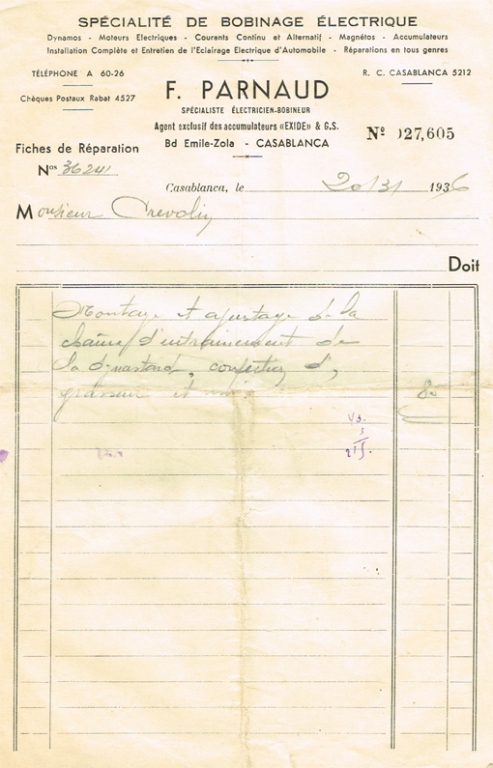 SPÉCIALITÉ DE BOBINAGE ÉLECTRIQUE
Dynamos - Moteurs Electriques - Courants Continu et Alternatif - Magnétos - Accumulateurs
Installation Complète et Entretien de l'Eclairage Electrique d'Automobile - Réparations en tous genres
TÉLÉPHONE A 60-26
R. C. CASABLANCA 5212
Chèques Postaux Rabat 4527
F. PARNAUD
SPÉCIALISTE ÉLECTRICIEN-BOBINEUR
Agent exclusif des accumulateurs «EXIDE» & G.S.
Bd Emile-Zola - CASABLANCA
Nº 027,605
Fiches de Réparation
Nos 36241
Casablanca, le 20/3/ 1936
Monsieur Crevolin
Doit
Montage et ajustage de la
chaîne d'entrainement de
la dynastart, confection d'
graisseur et 80